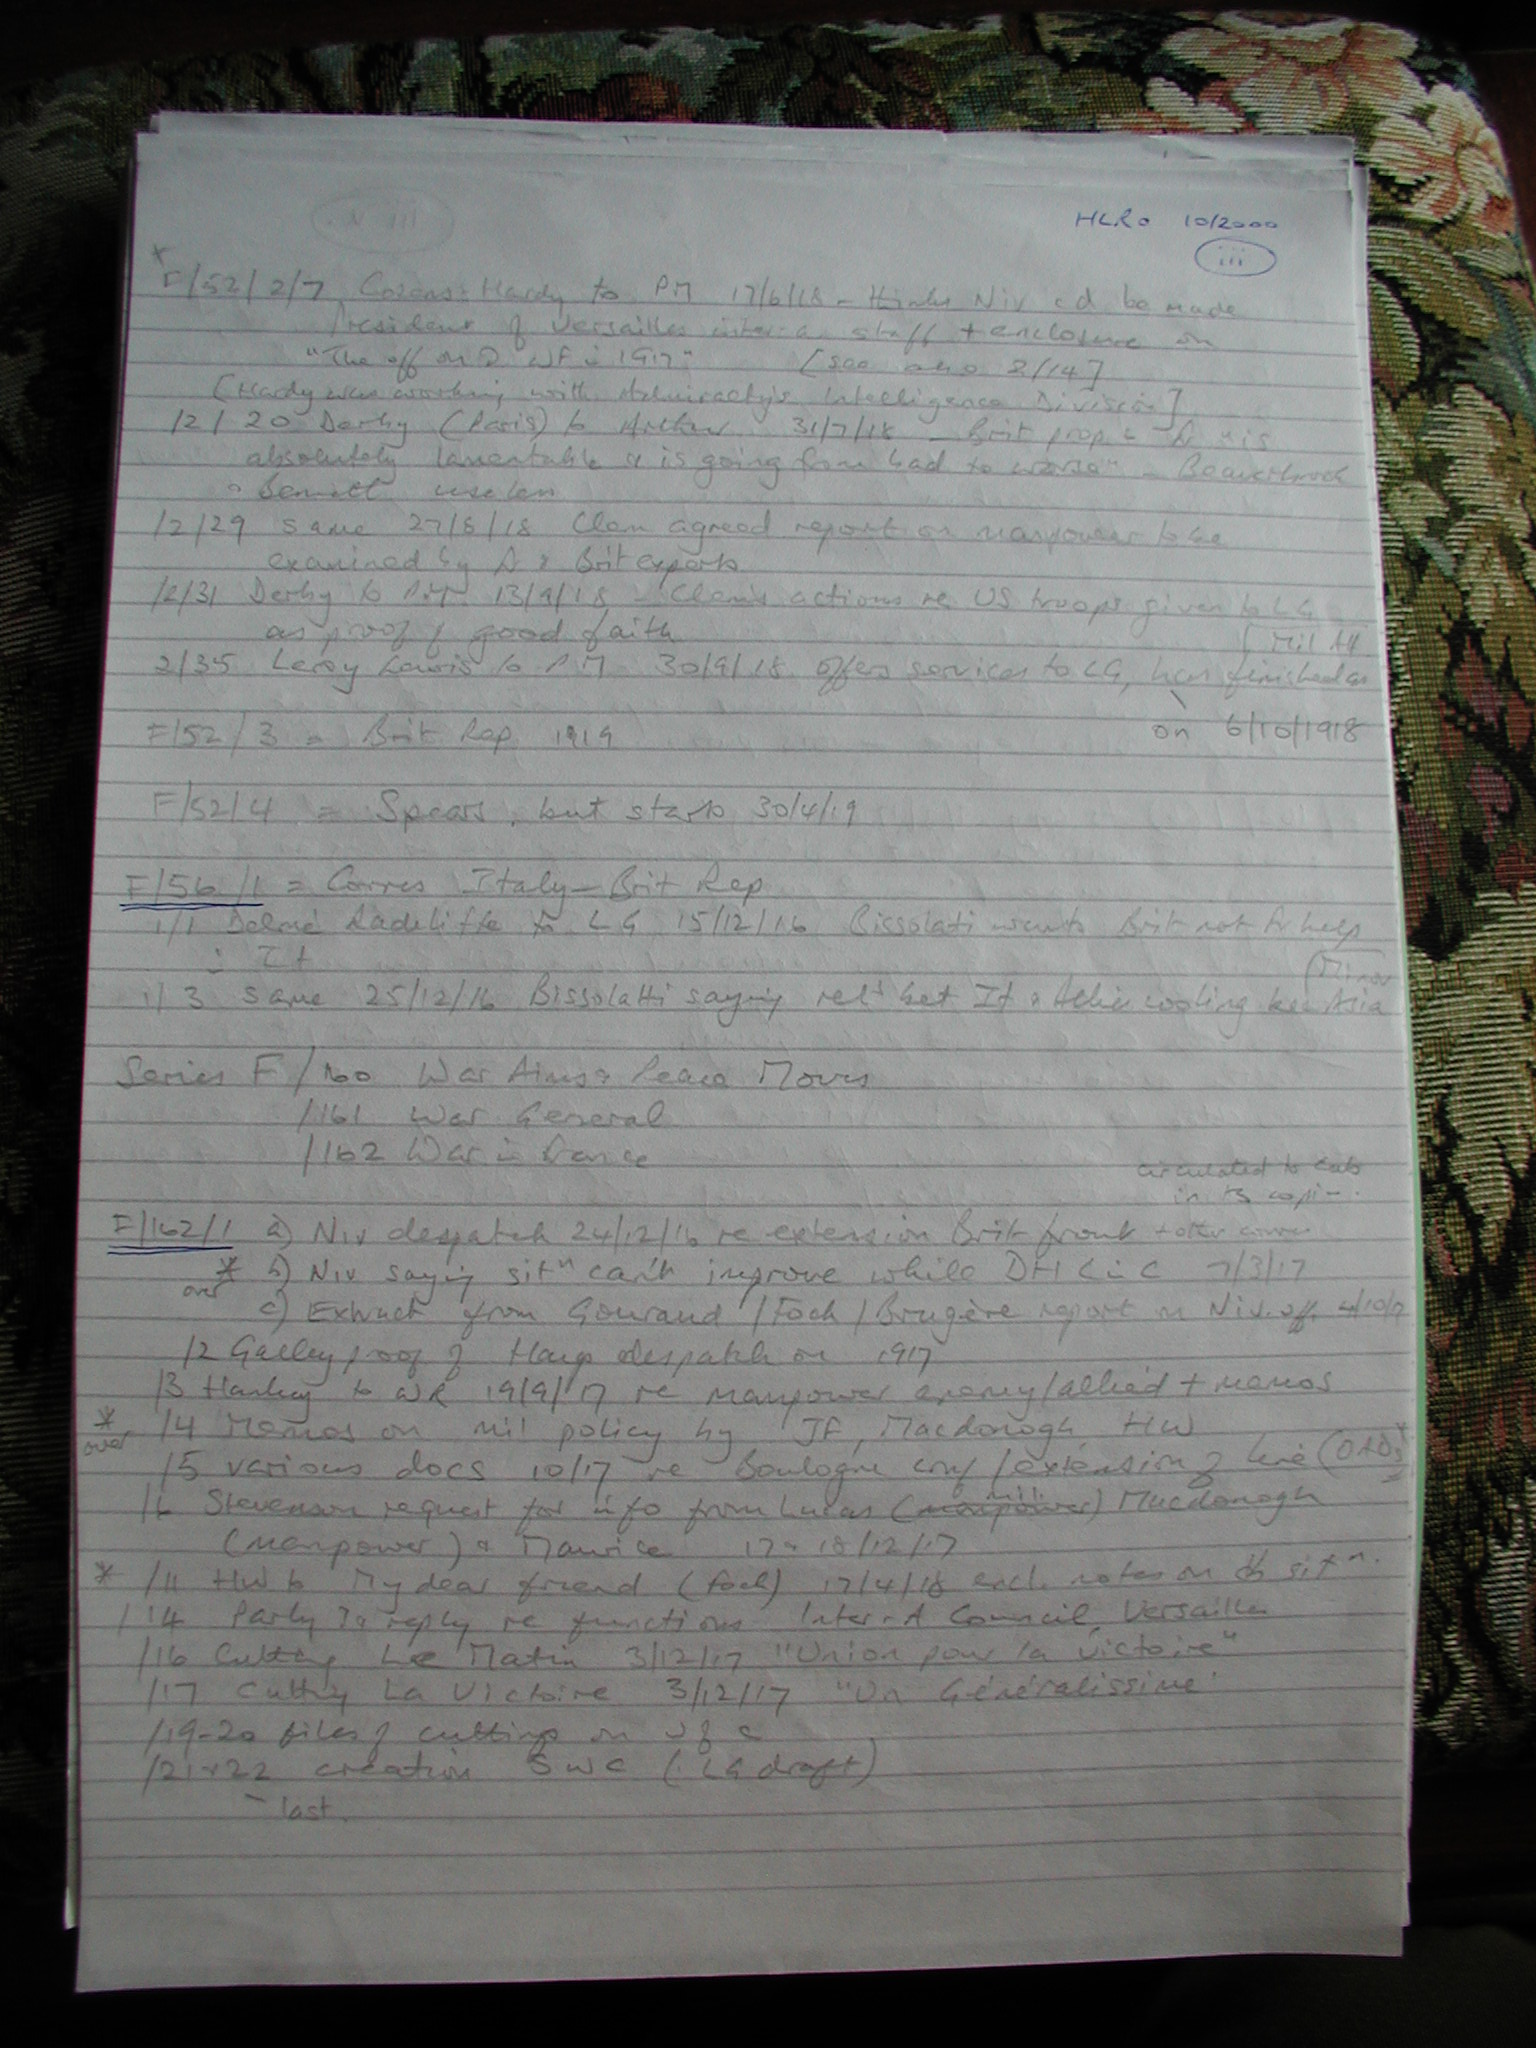 HLRO 10/2000
iii
* F/52/2/7 Cozens-Hardy to PM 17/6/18 - thinks Niv cd be made
President of Versailles inter-a staff + enclosure on
"The off on D WF in 1917" [see also 2/14]
[Hardy was working with Admiralty's Intelligence Division]
/2/20 Derby (Paris) to Arthur 31/7/18 - Brit prop in is
absolutely lamentable & is going from bad to worse" - Beaverbrook
& Bennett useless
/2/29 same 27/8/18 Clem agreed report on manpower to be
examined by & Brit experts
/2/31 Derby to P.M. 13/9/18 - Clem's actions re US troops given to LG
as proof of good faith
[Mil Att
2/35 Leroy Lewis to P.M 30/9/18 offers services to LG, has finished as
on 6/10/1918
F/52/3 = Brit Rep 1919
F/52/4 = Spears, but starts 30/4/19
F/56/1 = Corres Italy - Brit Rep
1/1 Delmé Radcliffe to LG 15/12/16 Bissolati wants Brit not Fr help
in It
(Minor
1/3 same 25/12/16 Bissolatti saying rels bet It & Allies cooling bec Asia
Series F/160 War Aims & Peace Moves
/161 War General
/162 War in France
circulated to Cab
in its
F/162/1 a) Niv despatch 24/12/16 re extension Brit front + other corres
* over b) Niv saying sitn can't improve while DH C in C 7/3/17
c) Extract from Gouraud/Foch/Brugère report on Niv. off. 4/10/17
/2 Galley proof of Haig despatch on 1917
/3 Hankey to WR 19/9/17 re manpower enemy/allied + memos
* over /4 Memos on mil policy by JF, Macdonogh, HW
/5 various docs 10/17 re Boulogne conf/extension of line
/6 Stevenson request for info from Lucas (manpower) Macdonogh
(manpower) & Maurice 17 & 18/12/17
* /11 HW to My dear friend (Foch) 17/4/18 encl. notes on sitn.
/14 Parly Q & reply re functions Inter-A Council, Versailles
/16 Cutting Le Matin 3/12/17 "Union pour la victoire"
/17 Cutting La Victoire 3/12/17 "Un Généralissime"
/19-20 files of cuttings on U of C
/21 & 22 creation SWC (LG draft)
last.